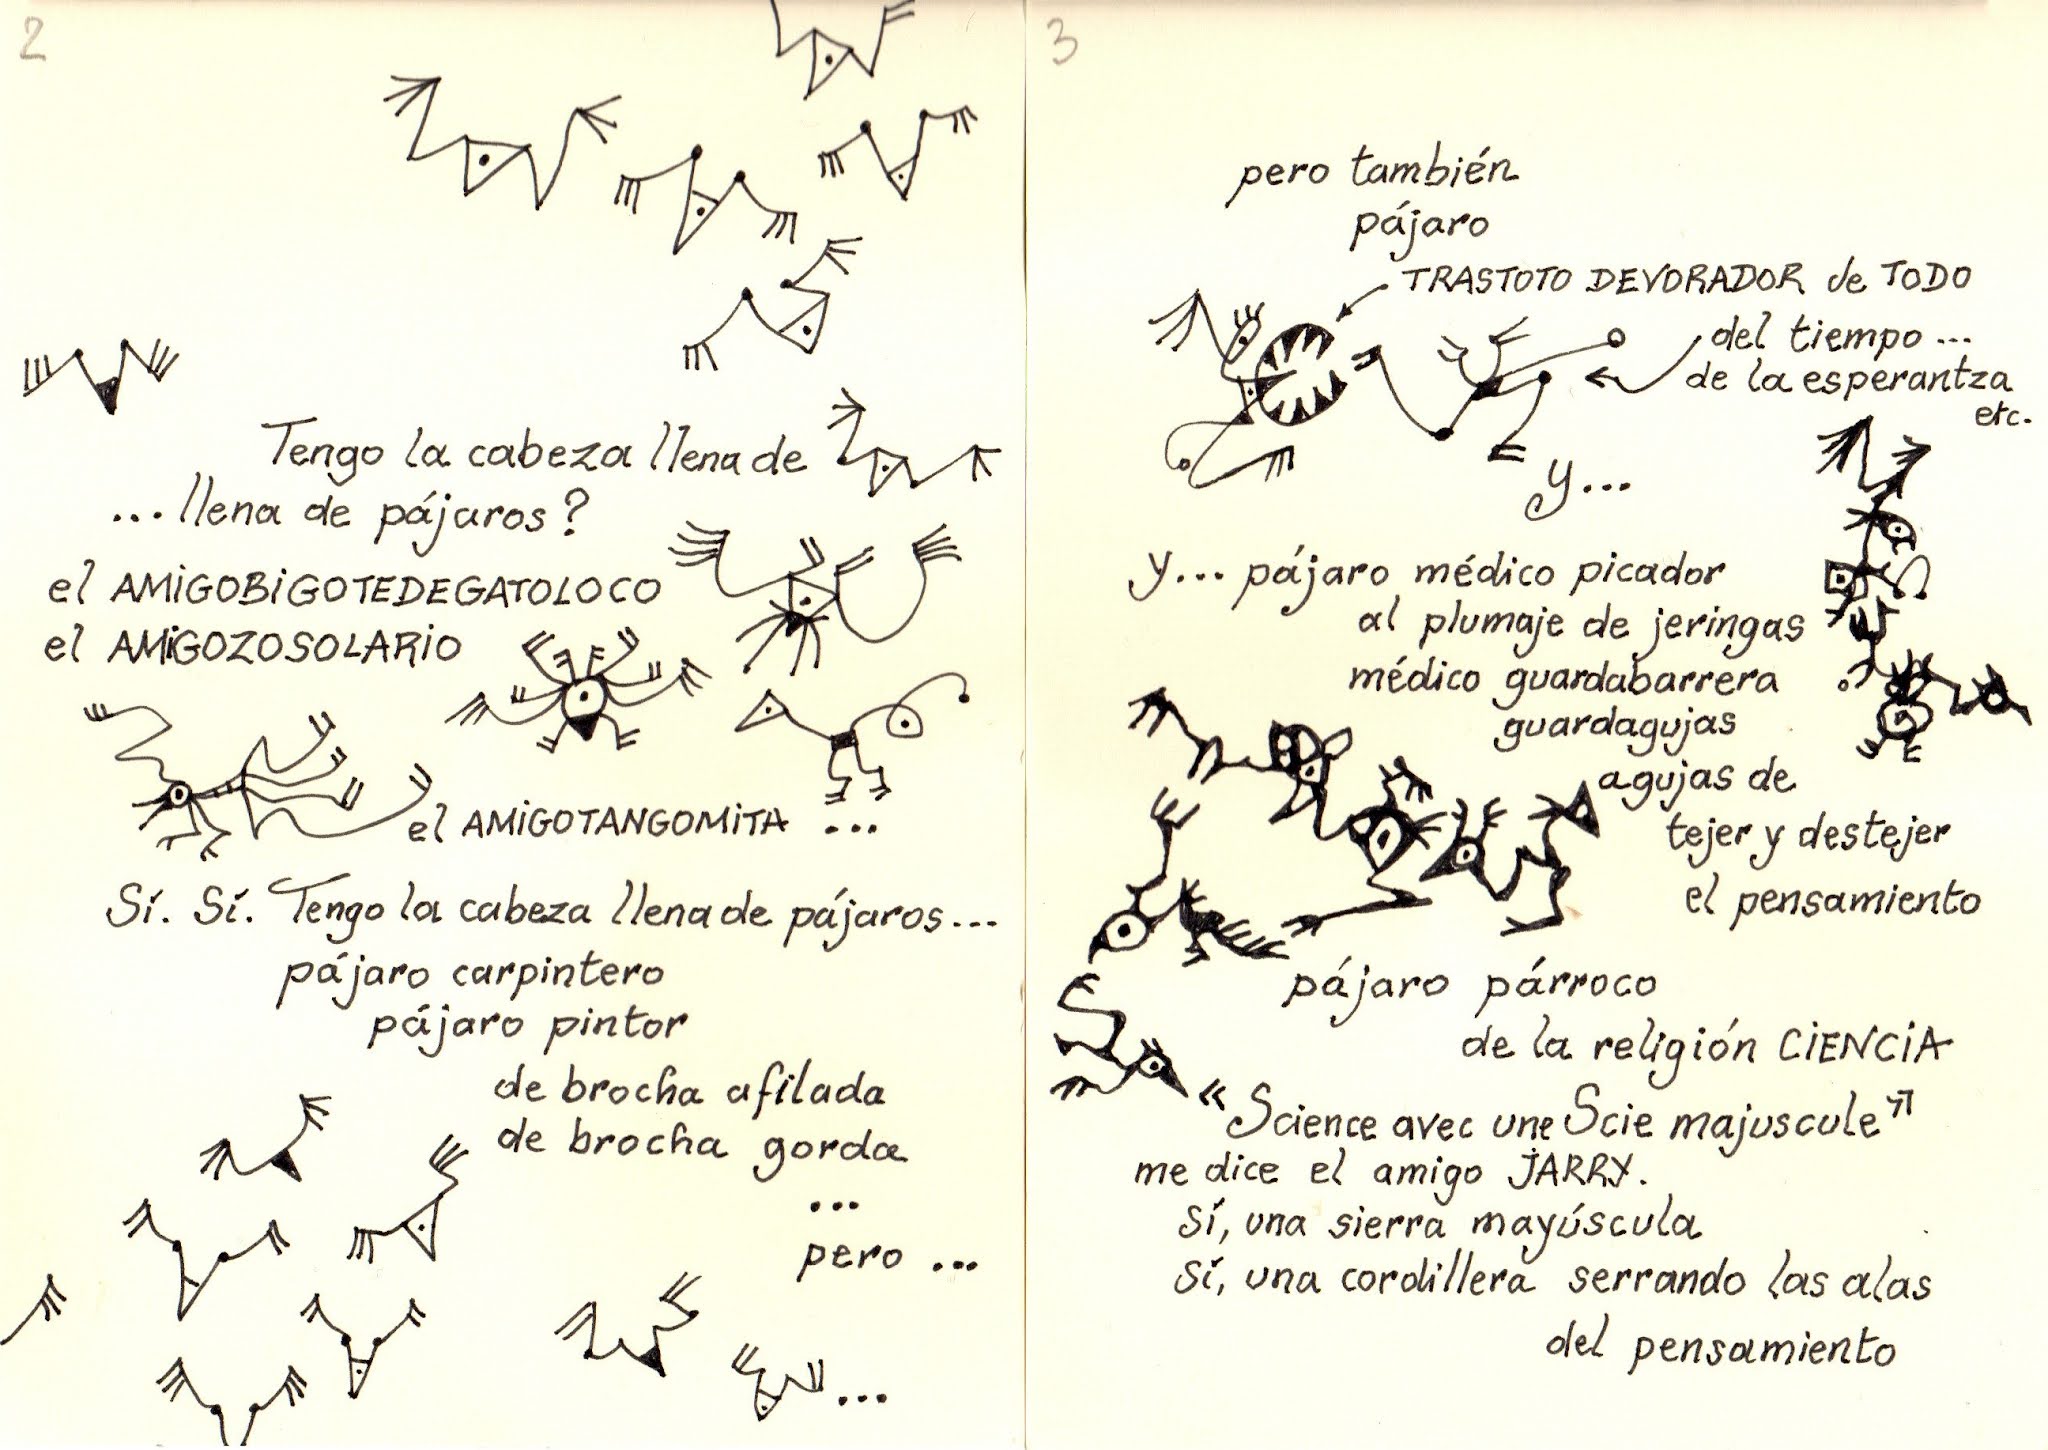 2
Tengo la cabeza llena de
...llena de pájaros?
el AMiGOBiGOTEDEGATOLOCO
el AMiGOZOSOLARiO
el AMiGOTANGOMiTA ...
Sí. Sí. Tengo la cabeza llena de pájaros...
pájaro carpintero
pájaro pintor
de brocha afilada
de brocha gorda
...
pero ...
...
3
pero también
pájaro
TRASTOTO DEVORADOR de TODO
del tiempo ...
de la esperantza
etc.
y...
y... pájaro médico picador
al plumaje de jeringas
médico guardabarrera
guardagujas
agujas de
tejer y destejer
el pensamiento
pájaro párroco
de la religión CiENCiA
«Science avec une Scie majuscule»
me dice el amigo JARRY.
sí, una sierra mayúscula
sí, una cordillera serrando las alas
del pensamiento